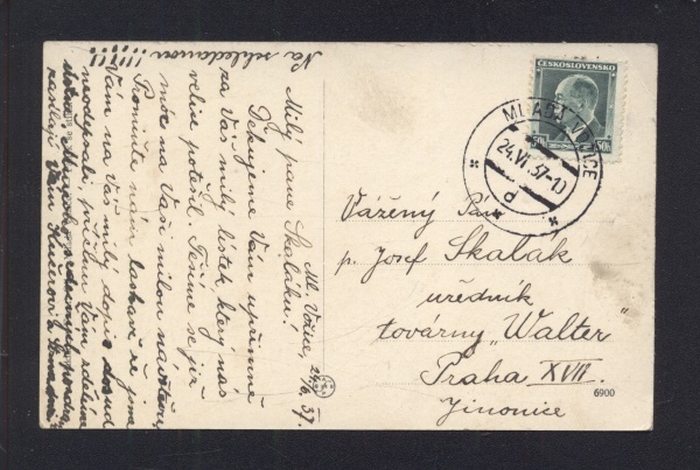 Na schledanou
!!!!!!
Ml. Vožice, 24/6. 37.
Milý pane Skaláku!
Děkujeme Vám upřímně
za Váš milý lístek, který nás
velice potěšil. Těšíme se již
moc na Vaši milou návštěvu.
Promiňte nám laskavě že jsme
Vám na Váš milý dopis dosud
neodepsali, příčinu Vám sdělíme
zasílají Vám Kučerovi
ČESKOSLOVENSKO
50h 50h
MLADÁ VOŽICE
24.VI.37-10
d
Vážený Pán
p. Josef Skalák
úředník
továrny „Walter"
Praha XVII.
Jinonice
6900